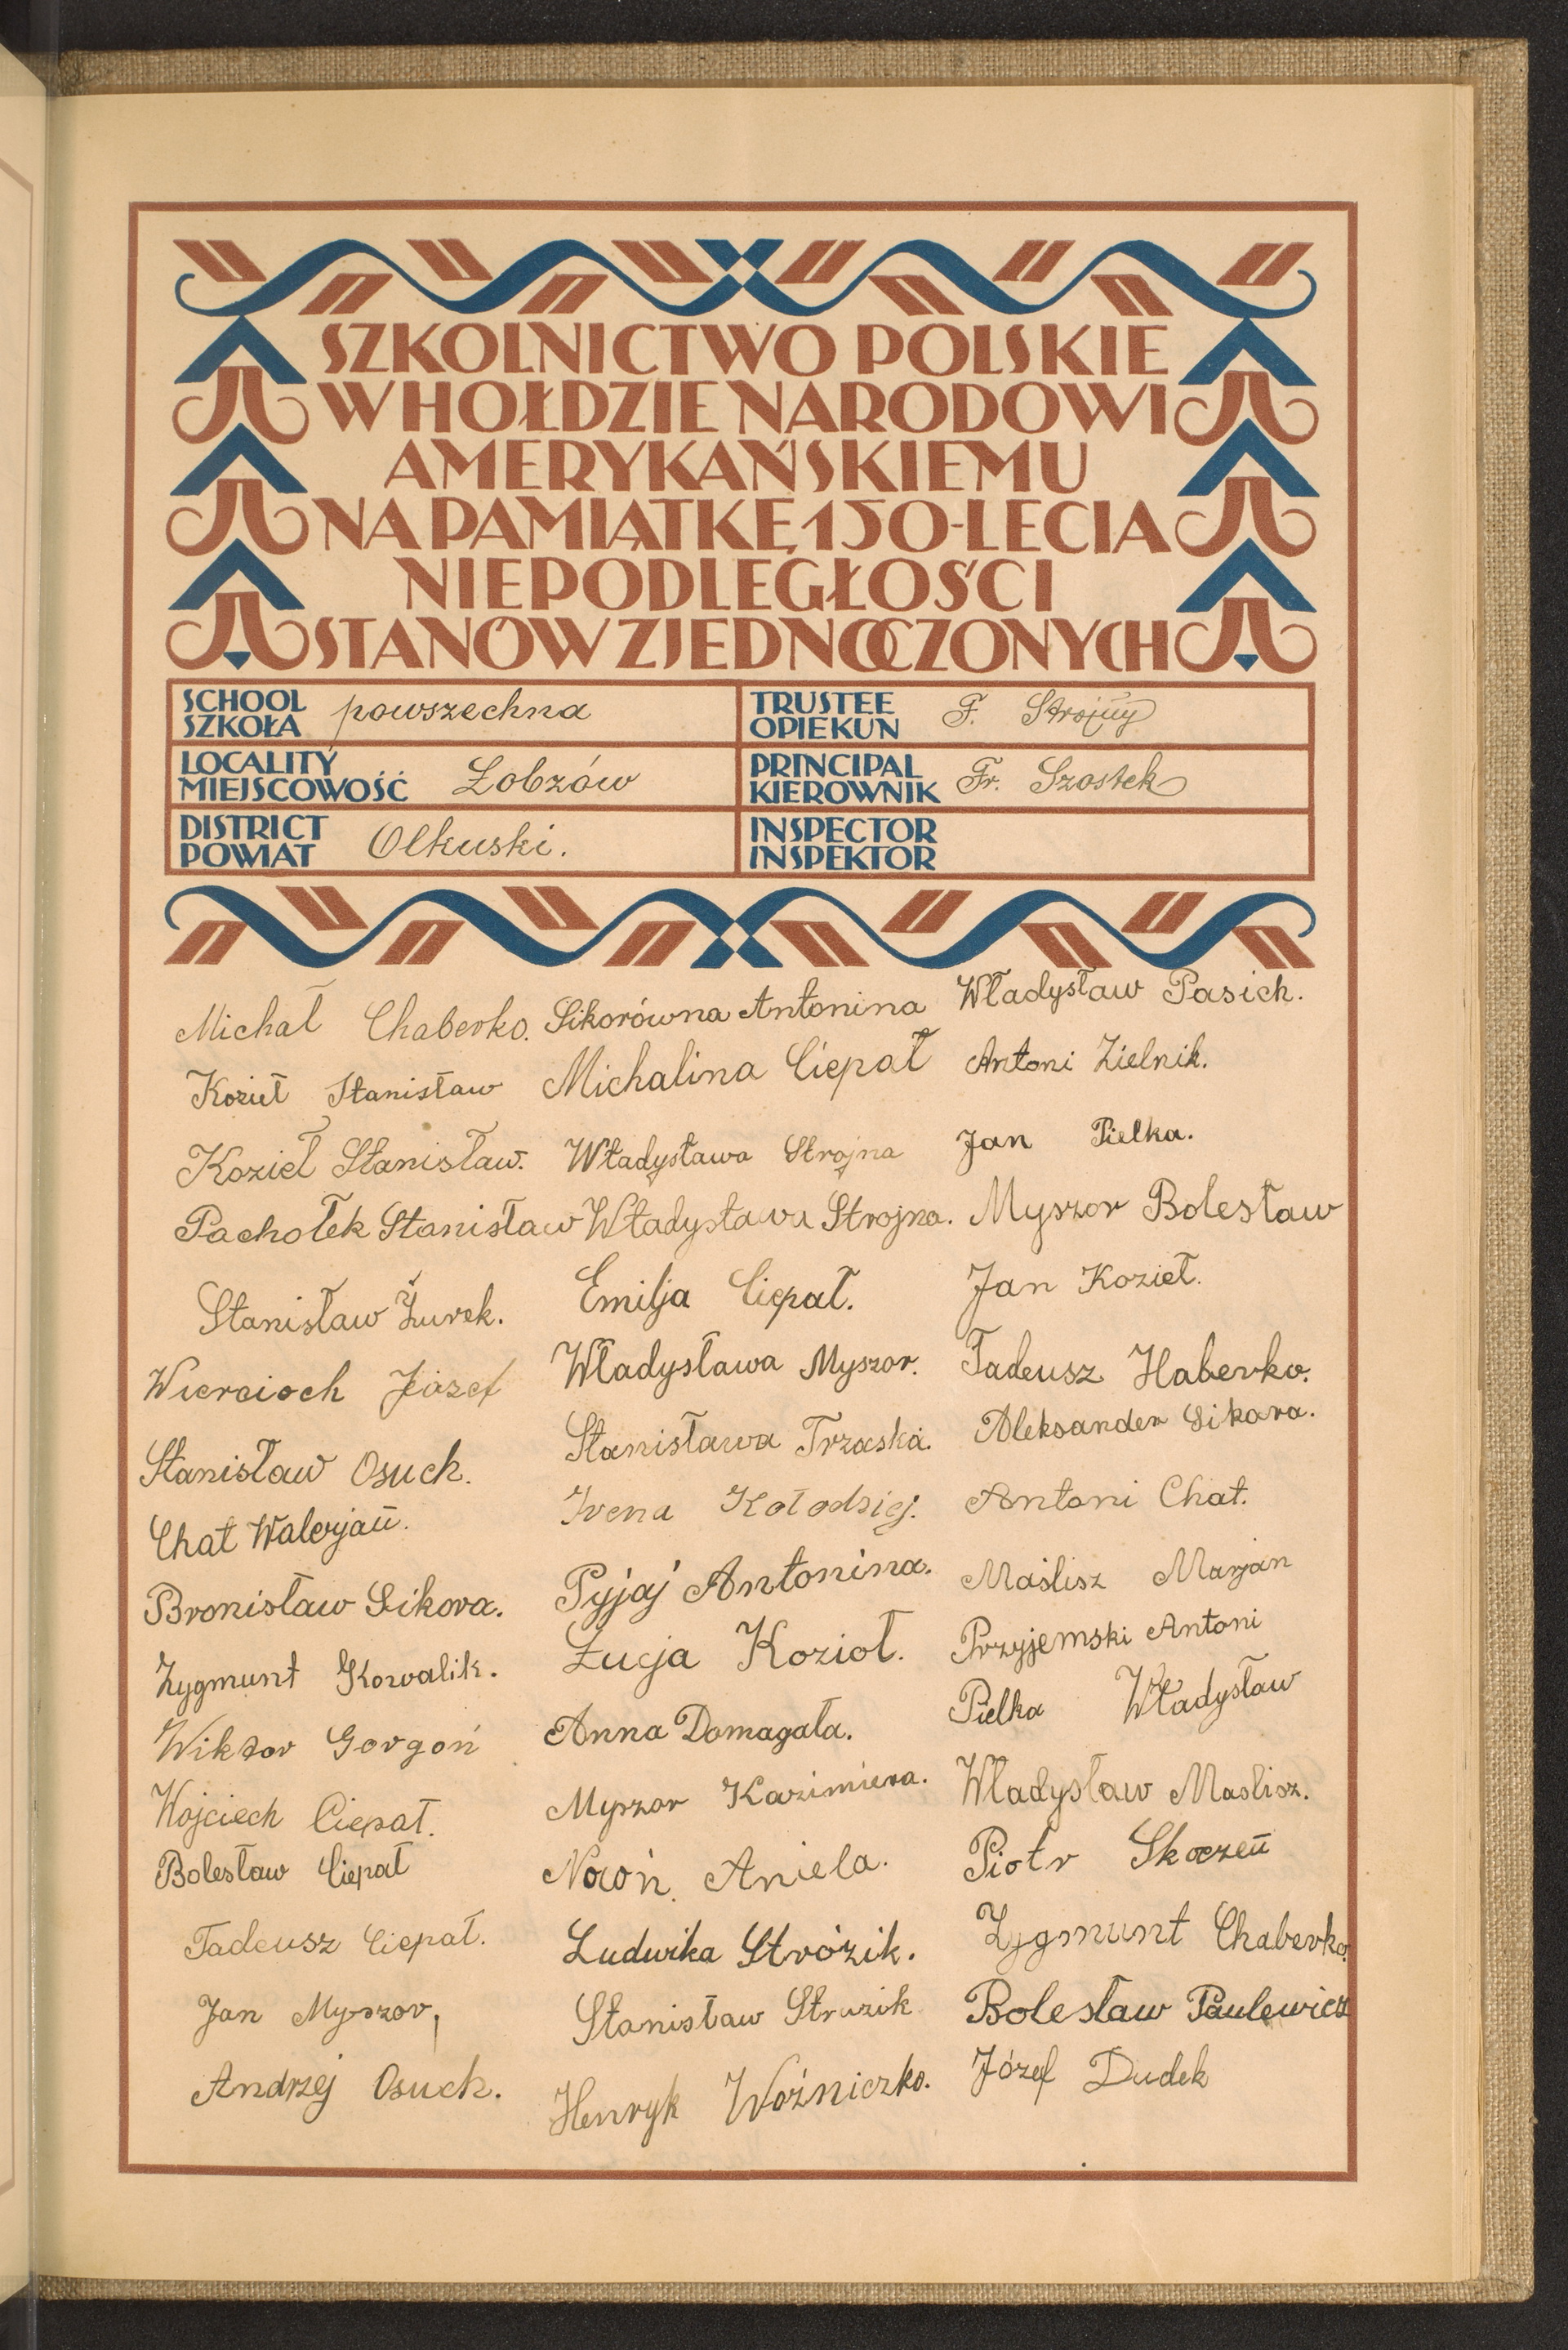 SZKOLNICTWO POLSKIE
W HOŁDZIE NARODOWI
AMERYKAŃSKIEMU
NA PAMIĄTKĘ 150-LECIA
NIEPODLEGŁOŚCI
STANÓW ZJEDNOCZONYCH
SCHOOL
SZKOŁA powszechna
TRUSTEE
OPIEKUN F. Strojny
LOCALITY
MIEJSCOWOŚĆ Łobzów
PRINCIPAL
KIEROWNIK Fr. Szostek
DISTRICT
POWIAT Olkuski.
INSPECTOR
INSPEKTOR
Michał Chaberko.
Kozieł Stanisław
Kozieł Stanisław.
Pachołek Stanisław
Stanisław Żurek.
Wiercioch Józef
Stanisław Osuch.
Chat Walerjan.
Bronisław Sikora.
Zygmunt Kowalik.
Wiktor Gorgoń
Wojciech Ciepał.
Bolesław Ciepał
Tadeusz Ciepał.
Jan Myszor,
Andrzej Osuch.
Sikorówna Antonina
Michalina Ciepał
Władysława Strojna
Władysława Strojna.
Emilja Ciepał.
Władysława Myszor.
Stanisława Trzaska.
Irena Kołodziej.
Pyjaj Antonina.
Łucja Kozioł.
Anna Domagała.
Myszor Kazimiera.
Nowoń. Aniela.
Ludwika Stróżik.
Stanisław Struzik
Henryk Woźniczko.
Władysław Pasich.
Antoni Zielnik.
Jan Pielka.
Myszor Bolesław
Jan Kozieł.
Tadeusz Haberko.
Aleksander Sikora.
Antoni Chat.
Maślisz Marjan
Przyjemski Antoni
Pielka Władysław
Władysław Maslisz.
Piotr Skoczeń
Zygmunt Chaberko.
Bolesław Paulewicz
Józef Dudek